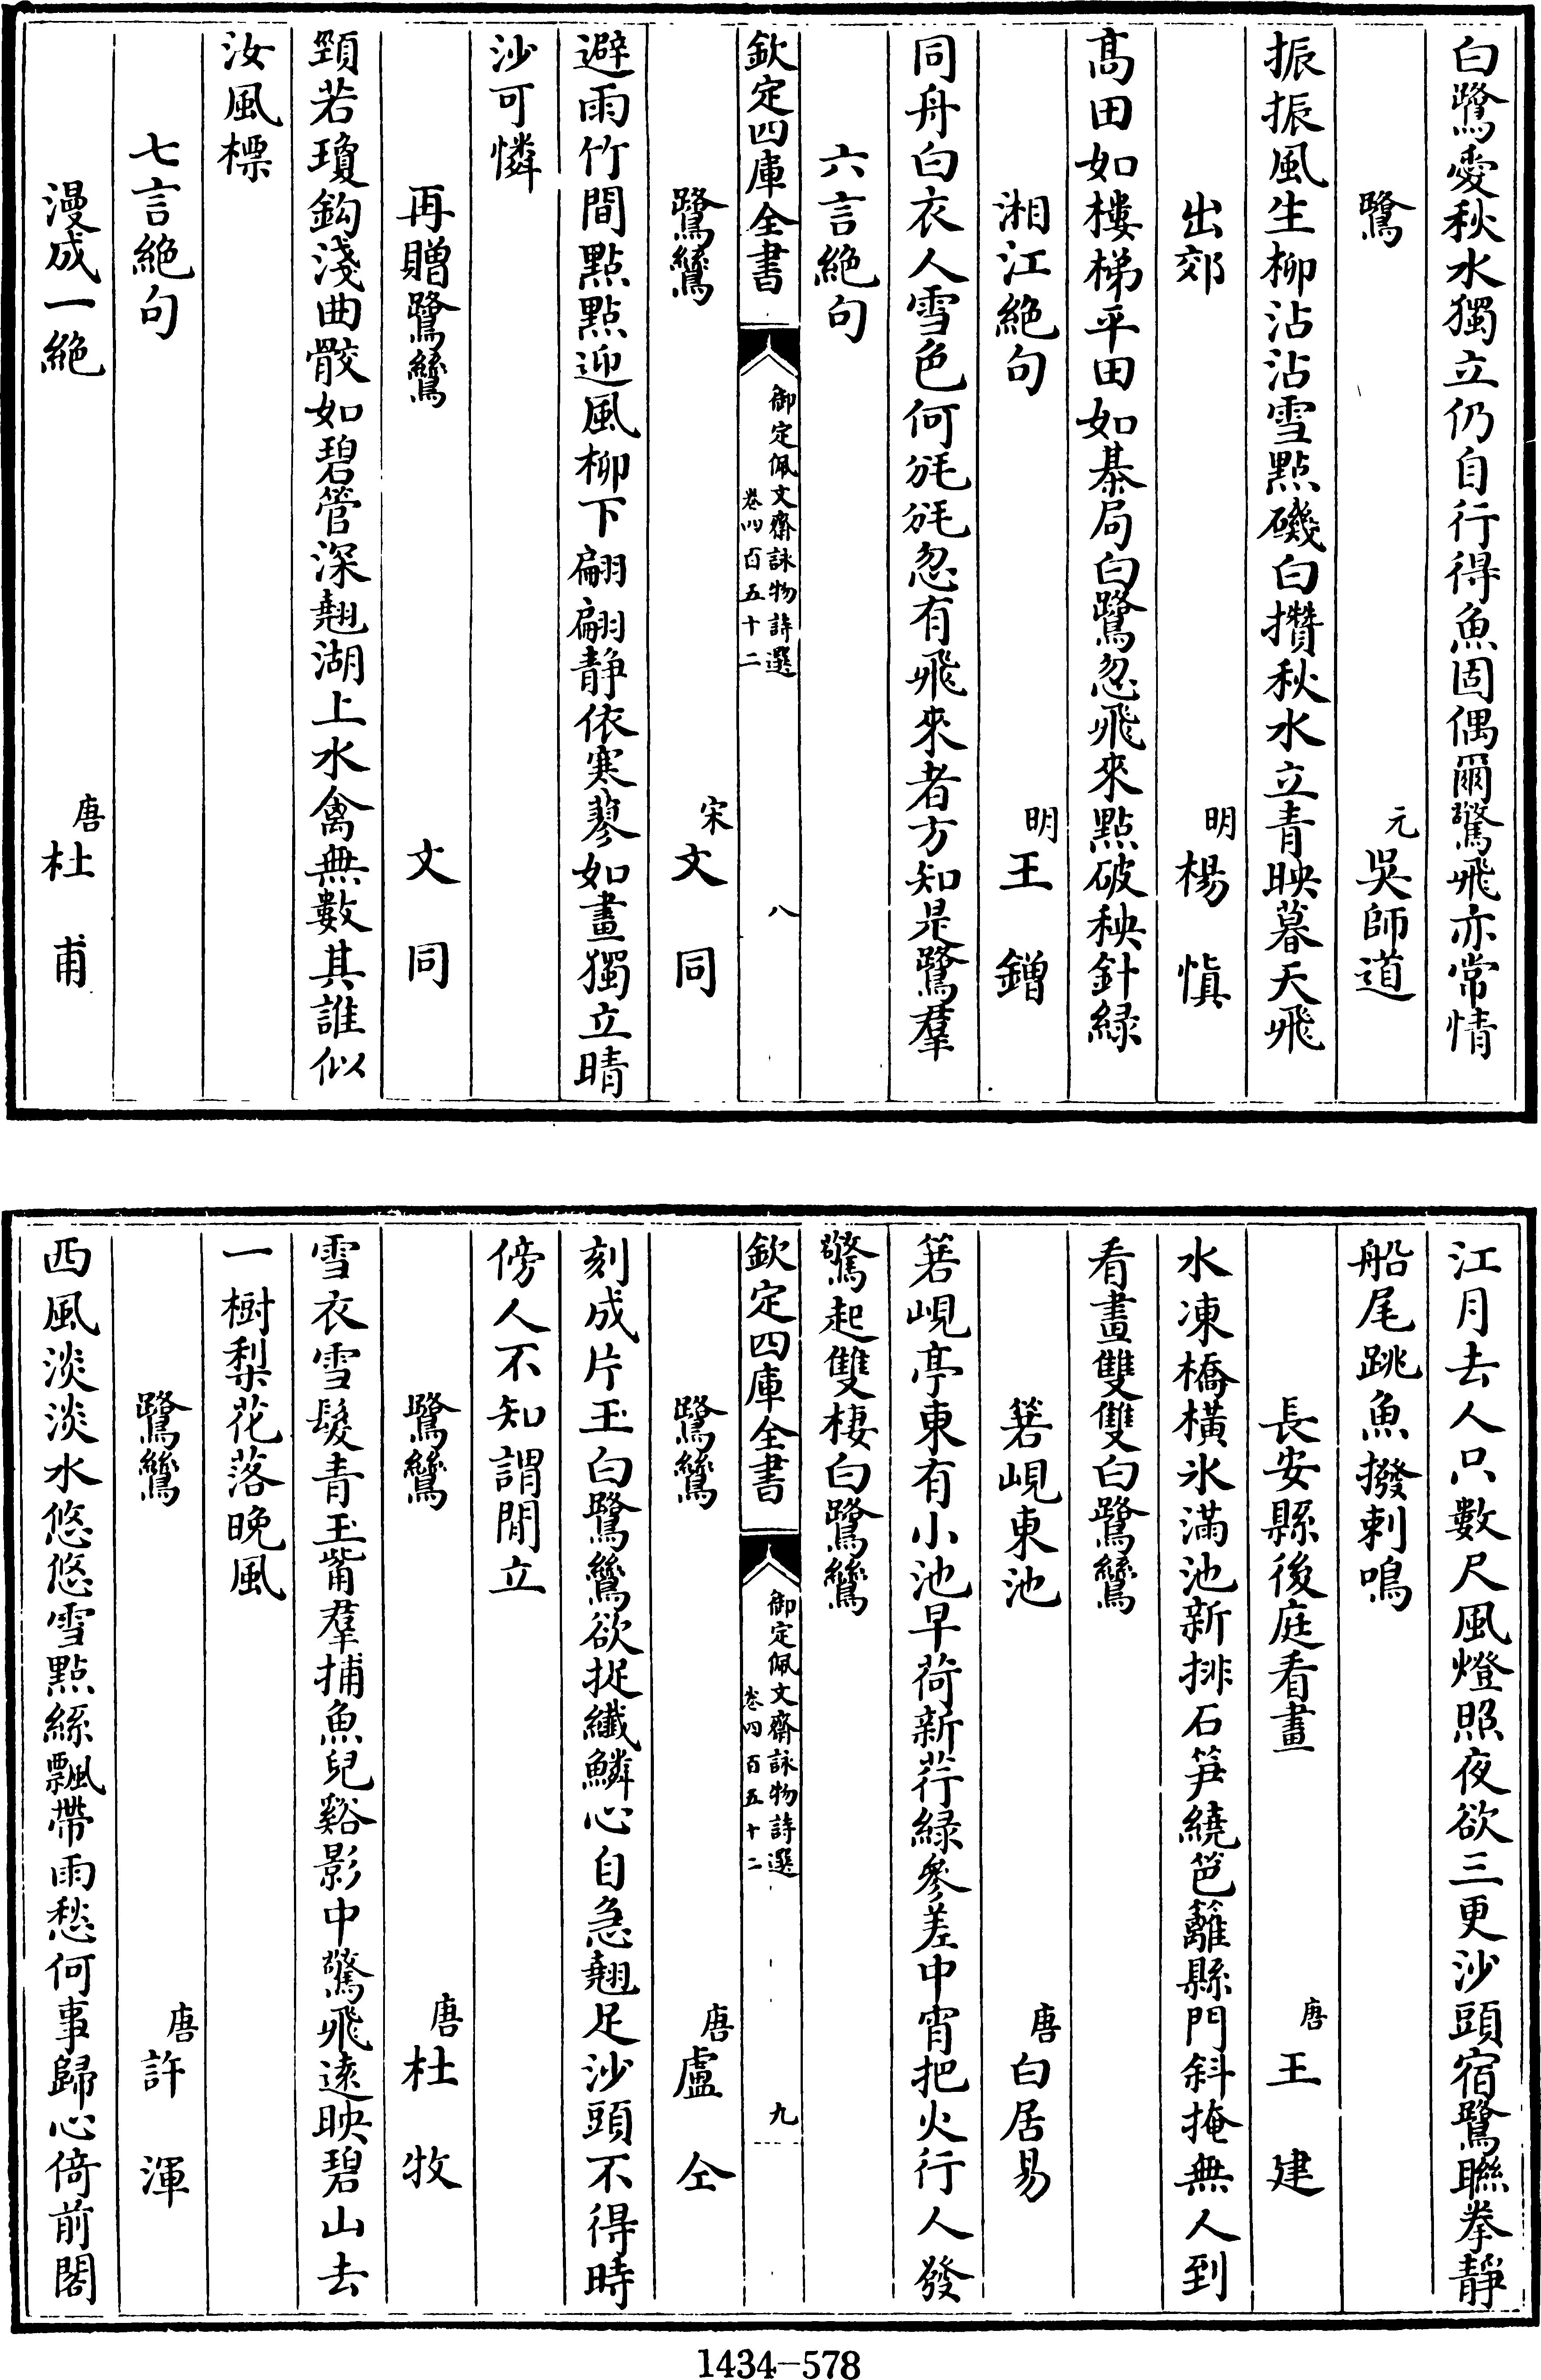 白鷺愛秋水獨立仍自行得魚固偶爾驚飛亦常情
鷺 元吳師道
振振風生柳沾沾雪點磯白攢秋水立青映暮天飛
出郊 明楊慎
高田如樓梯平田如棊局白鷺忽飛來點破秧針緑
湘江絶句 明王鏳
同舟白衣人雪色何㲝㲝忽有飛來者方知是鷺羣
六言絶句
欽定四庫全書 御定佩文齋詠物詩選 卷四百五十二 八
鷺鷥 宋文同
避雨竹間點點迎風柳下翩翩静依寒蓼如畫獨立晴
沙可憐
再贈鷺鷥 文同
頸若瓊鈎淺曲骹如碧管深翹湖上水禽無數其誰似
汝風標
七言絶句
漫成一絶 唐杜甫
江月去人只數尺風燈照夜欲三更沙頭宿鷺聯拳静
船尾跳魚撥剌鳴
長安縣後庭看畫 唐王建
水凍橋横氷滿池新排石笋繞笆籬縣門斜掩無人到
看畫雙雙白鷺鷥
箬峴東池 唐白居易
箬峴亭東有小池早荷新荇緑參差中宵把火行人發
驚起雙棲白鷺鷥
欽定四庫全書 御定佩文齋詠物詩選 卷四百五十二 九
鷺鷥 唐盧仝
刻成片玉白鷺鷥欲捉纎鱗心自急翹足沙頭不得時
傍人不知謂閒立
鷺鷥 唐杜牧
雪衣雪髮青玉觜羣捕魚兒谿影中驚飛逺映碧山去
一樹梨花落晚風
鷺鷥 唐許渾
西風淡淡水悠悠雪點絲飄帶雨愁何事歸心倚前閣
1434-578